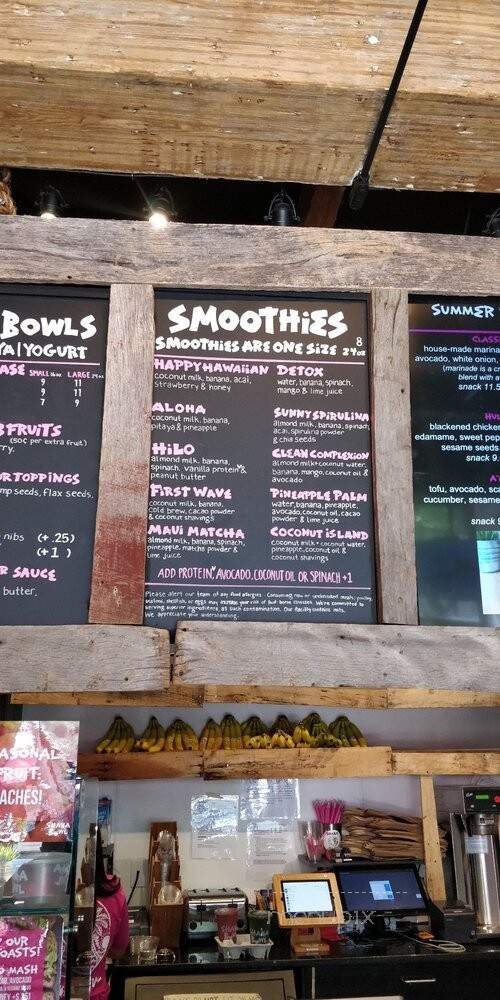 BOWLS
YA|YOGURT
BASE SMALL 16oz LARGE 24oz
9 11
9 11
7 9
FRUITS
(50¢ per extra fruit)
TOPPINGS
hemp seeds, flax seeds,
nibs (+.25)
(+1)
SAUCE
butter,
SMOOTHIES
SMOOTHIES ARE ONE SIZE 24oz
8
HAPPY HAWAIIAN
coconut milk, banana, acai,
strawberry & honey
ALOHA
coconut milk, banana,
pitaya & pineapple
HILO
almond milk, banana,
spinach, vanilla protein &
peanut butter
FIRST WAVE
coconut milk, banana,
cold brew, cacao powder
& coconut shavings
MAUI MATCHA
almond milk, banana, spinach,
pineapple, matcha powder &
lime juice
DETOX
water, banana, spinach,
mango & lime juice
SUNNY SPIRULINA
almond milk, banana, spinach,
acai, spirulina powder
& chia seeds
CLEAN COMPLEXION
almond milk+coconut water,
banana, mango, coconut oil &
avocado
PINEAPPLE PALM
water, banana, pineapple,
avocado, coconut oil, cacao
powder & lime juice
COCONUT ISLAND
coconut milk+coconut water,
pineapple, coconut oil &
coconut shavings
ADD PROTEIN, AVOCADO, COCONUT OIL OR SPINACH +1
Please alert our team of any food allergies. Consuming raw or undercooked meats, poultry,
seafood, shellfish, or eggs may increase your risk of food-borne illnesses. We're committed to
serving superior ingredients
We appreciate your understanding.
SUMMER
CLASSIC
house-made marina
avocado, white onion,
(marinade is a
blend with
snack 11.5
blackened chicken
edamame, sweet pep
sesame seeds
snack 9.
tofu, avocado, sca
cucumber, sesame
snack
SEASONAL
FRUIT:
PEACHES!
OUR
TOASTS!
MASH